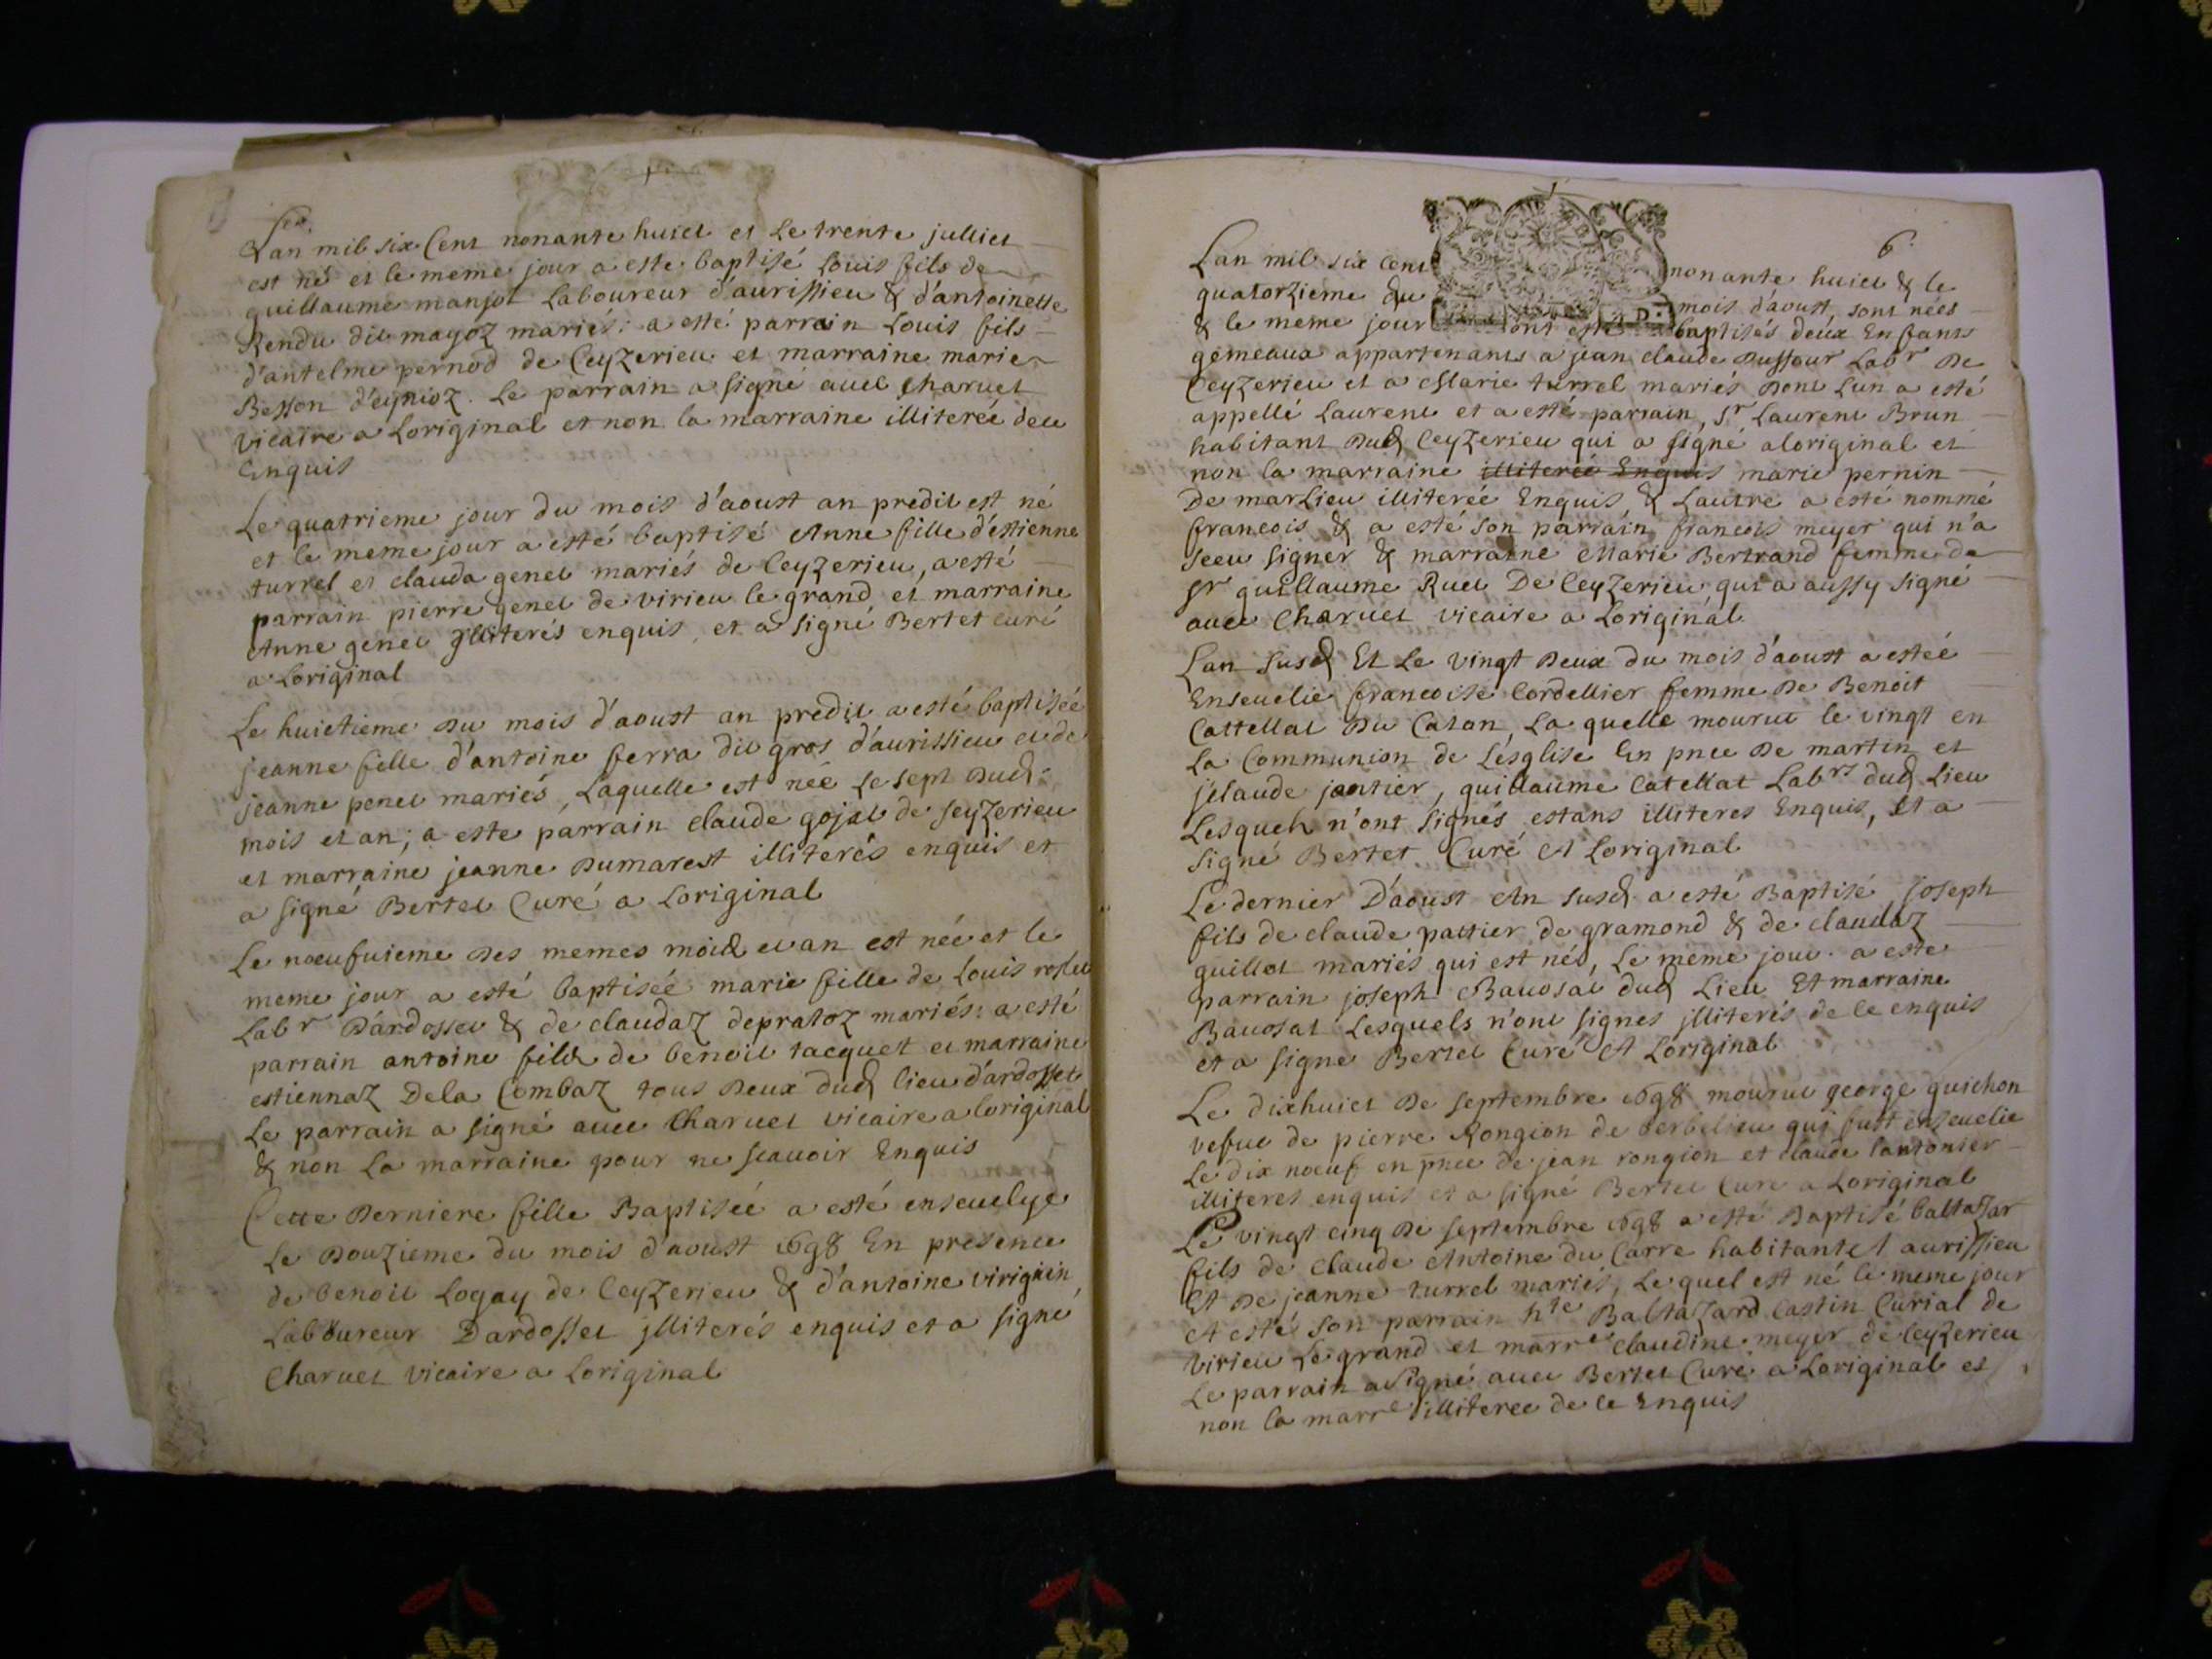 Lan mil six Cent nonante huict et Le trente julliet
est né et le meme jour a este baptisé Louis fils de
guillaume manjot Laboureur d'aurissieu & d'antoinette
Rendu dit mayoz mariés: a esté parrain Louis fils
d'antelme pernod de Ceyzerieu et marraine marie
Besson d'eynioz. Le parrain a signé avec Charvet
vicaire a Loriginal et non la marraine illiterée de ce
Enquis
Le quatrieme jour du mois d'aoust an predit est né
et le meme jour a esté baptisé Anne fille d'estienne
turrel et clauda genet mariés de Ceyzerieu, a esté
parrain pierre genet de virieu le grand et marraine
Anne genet jlliterés enquis, et a signé Bertet curé
a Loriginal
Le huictieme du mois d'aoust an predit a esté baptisée
jeanne fille d'antoine ferra dit gros d'aurissieu et de
jeanne penet mariés, Laquelle est née Le sept dud:
mois et an; a este parrain claude gojet de seyzerieu
et marraine jeanne Dumarest illiterés enquis et
a signé Bertet Curé a Loriginal
Le noeufuieme des memes mois et an est née et le
meme jour a esté baptisée marie fille de Louis
Labr D'ardosset & de claudaz depratoz mariés: a esté
parrain antoine fils de benoit tacquet et marraine
estiennaz Dela Combaz tous deux dud lieu d'ardosset
Le parrain a signé avec Charvet vicaire a loriginal
& non La marraine pour ne scavoir Enquis
Cette derniere fille Baptisée a esté ensevelye
Le douzieme du mois d'aoust 1698 En presence
de benoit Logay de Ceyzerieu & d'antoine virignin
Laboureur Dardosset jlliterés enquis et a signé
Charvet vicaire a Loriginal
6
Lan mil six cent nonante huict & le
quatorzieme du mois d'aoust, sont nées
& le meme jour ont esté baptisés deux Enfants
gemeaux appartenants a jean claude Duffour Labr De
Ceyzerieu et a Marie turrel mariés Dont Lun a esté
appellé Laurent et a esté parrain, Sr Laurent Brun
habitant Dud Ceyzerieu qui a signé aloriginal et
non la marraine illiterée Enquis marie pernin
De marLieu illiterée Enquis & Lautre a esté nommé
francois & a esté son parrain francois meyer qui n'a
sceu signer & marraine Marie Bertrand femme de
Sr guillaume Ruet De Ceyzerieu qui a aussy signé
avec Charvet vicaire a Loriginal
Lan susd Et Le vingt deux du mois d'aoust a estée
Ensevelie francoise Cordellier femme De Benoit
Cattellat Du Catan, La quelle mourut le vingt en
La Communion de Lésglise En pnce De martin et
jclaude jantier, guillaume Catellat Labrs dud Lieu
Lesquels n'ont signés estans illiteres Enquis, Et a
signé Bertet Curé A Loriginal
Le dernier D'aoust An susd a esté Baptisé joseph
fils de claude pattier de gramond & de claudaz
guillot mariés qui est nés, Le meme jour. a este
parrain joseph Bavosat dud Lieu Et marraine
Bavosat Lesquels n'ont signés jlliterés de ce enquis
et a signe Bertet Curé A Loriginal
Le dixhuict De septembre 1698 mourut george guichon
vefue de pierre Rongion de berbelieu qui fust ensevelie
Le dix noeuf en pnce de jean rongion et claude lantonier
illiteres enquis et a signé Bertet Curé a Loriginal
Le vingt cinq De septembre 1698 a esté Baptisé baltazar
fils de claude Antoine du Carre habitant A aurissieu
Et De jeanne turrel mariés, Le quel est né le meme jour
A esté son parrain hte Baltazard Castin Curial de
virieu Le grand et marre claudine meyer de Ceyzerieu
Le parrain a signé avec Bertet Curé a Loriginal et
non la marre illiteree de ce Enquis